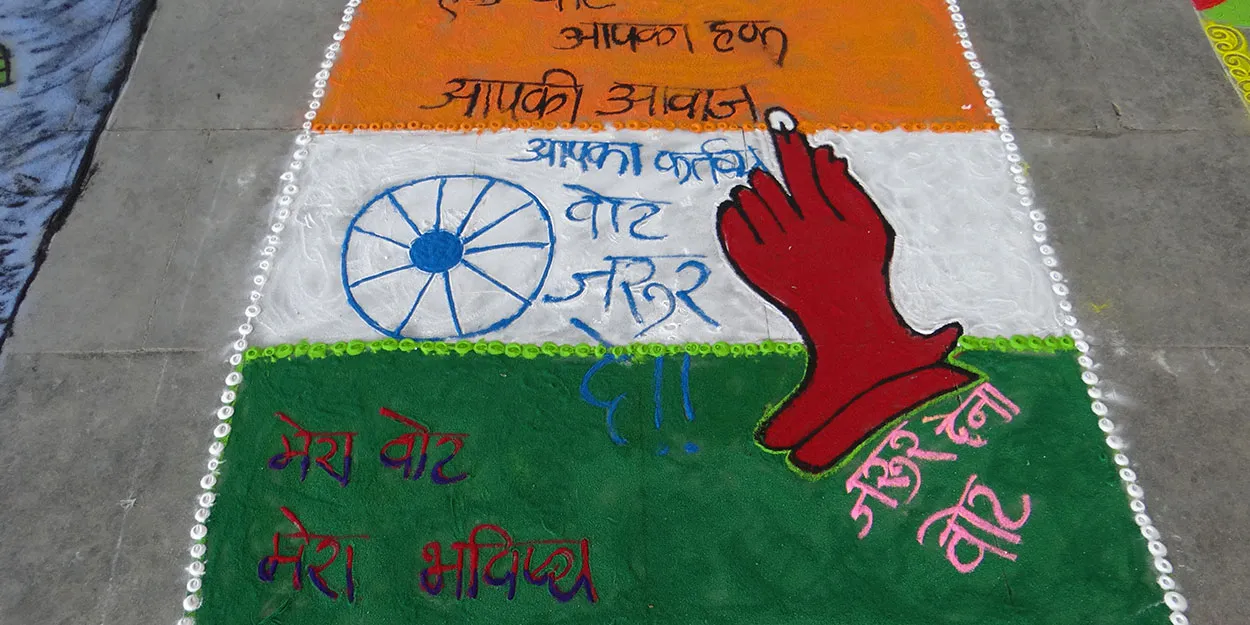 एक वोट
आपका हक
आपकी आवाज
आपका कर्तव्य
वोट
जरूर
दे!!
मेरा वोट
मेरा भविष्य
जरूर देना
वोट